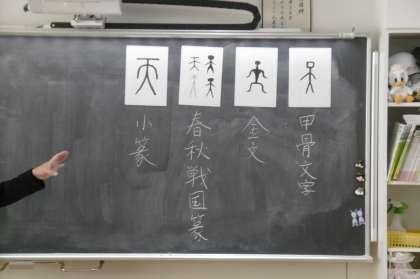 甲骨文字
金文
春秋戦国篆
小篆